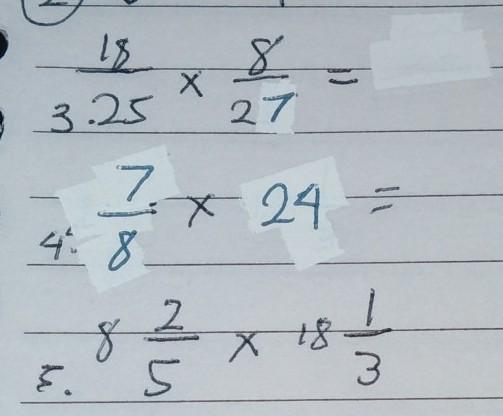 3. 18/25 × 8/27 =
4. 7/8 × 24 =
5. 8 2/5 × 18 1/3